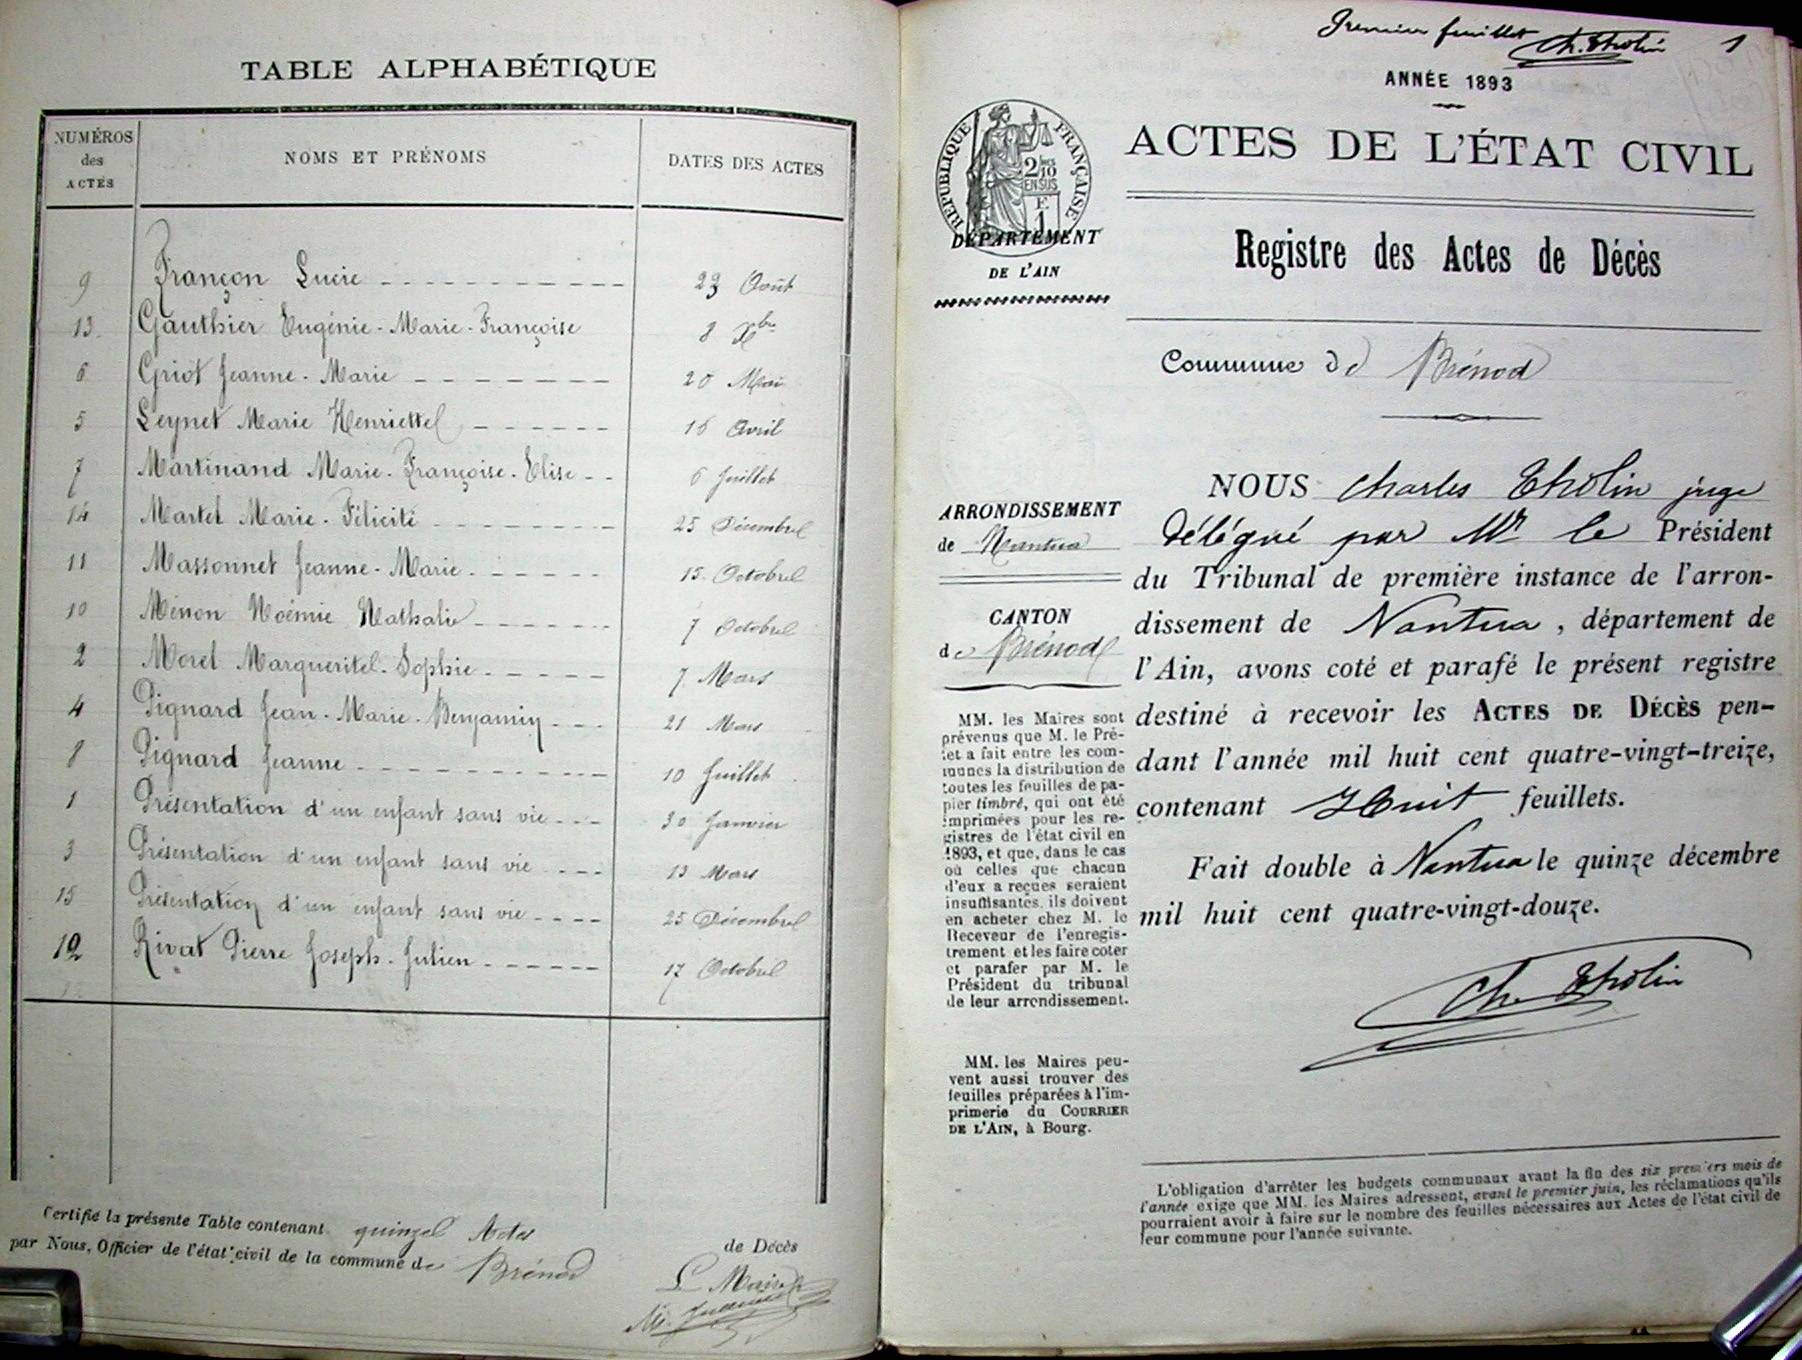 TABLE ALPHABÉTIQUE
NUMÉROS des ACTES NOMS ET PRÉNOMS DATES DES ACTES
9 Françon Lucie 23 Août
13 Gauthier Eugénie-Marie-Françoise 8 Xbre
6 Griot Jeanne-Marie 20 Mai
5 Leynet Marie Henriette 16 Avril
7 Martinand Marie-Françoise-Elise 6 Juillet
14 Martel Marie-Félicité 25 Décembre
11 Massonnet Jeanne-Marie 15 Octobre
10 Menon Noémie Nathalie 7 Octobre
2 Morel Marguerite-Sophie 7 Mars
4 Pignard Jean-Marie-Benjamin 21 Mars
8 Pignard Jeanne 10 Juillet
1 Présentation d'un enfant sans vie 30 Janvier
3 Présentation d'un enfant sans vie 13 Mars
15 Présentation d'un enfant sans vie 25 Décembre
12 Rivat Pierre Joseph-Julien 17 Octobre
Certifié la présente Table contenant quinze Actes de Décès
par Nous, Officier de l'état civil de la commune de Brénod
Le Maire
Premier feuillet Ch. Tholin 1
ANNÉE 1893
ACTES DE L'ÉTAT CIVIL
RÉPUBLIQUE FRANÇAISE
2/10
EN SUS
E
1
DÉPARTEMENT
DE L'AIN
Registre des Actes de Décès
Commune de Brénod
ARRONDISSEMENT
de Nantua
CANTON
de Brénod
MM. les Maires sont
prévenus que M. le Pré-
fet a fait entre les com-
munes la distribution de
toutes les feuilles de pa-
pier timbré, qui ont été
imprimées pour les re-
gistres de l'état civil en
1893, et que, dans le cas
où celles que chacun
d'eux a reçues seraient
insuffisantes, ils doivent
en acheter chez M. le
Receveur de l'enregis-
trement et les faire coter
et parafer par M. le
Président du tribunal
de leur arrondissement.
MM. les Maires peu-
vent aussi trouver des
feuilles préparées à l'im-
primerie du COURRIER
DE L'AIN, à Bourg.
NOUS Charles Tholin juge
délégué par Mr le Président
du Tribunal de première instance de l'arron-
dissement de Nantua, département de
l'Ain, avons coté et parafé le présent registre
destiné à recevoir les ACTES DE DÉCÈS pen-
dant l'année mil huit cent quatre-vingt-treize,
contenant Huit feuillets.
Fait double à Nantua le quinze décembre
mil huit cent quatre-vingt-douze.
Ch. Tholin
L'obligation d'arrêter les budgets communaux avant la fin des six premiers mois de
l'année exige que MM. les Maires adressent, avant le premier juin, les réclamations qu'ils
pourraient avoir à faire sur le nombre des feuilles nécessaires aux Actes de l'état civil de
leur commune pour l'année suivante.